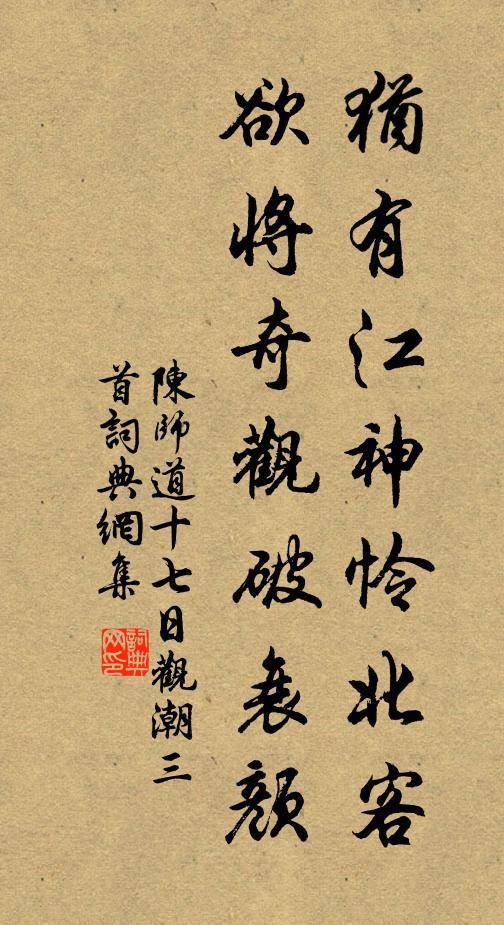 猶有江神怜北客
欲將奇觀破衰顏
陳師道十七日觀潮三
首詞典網集
詞典网印